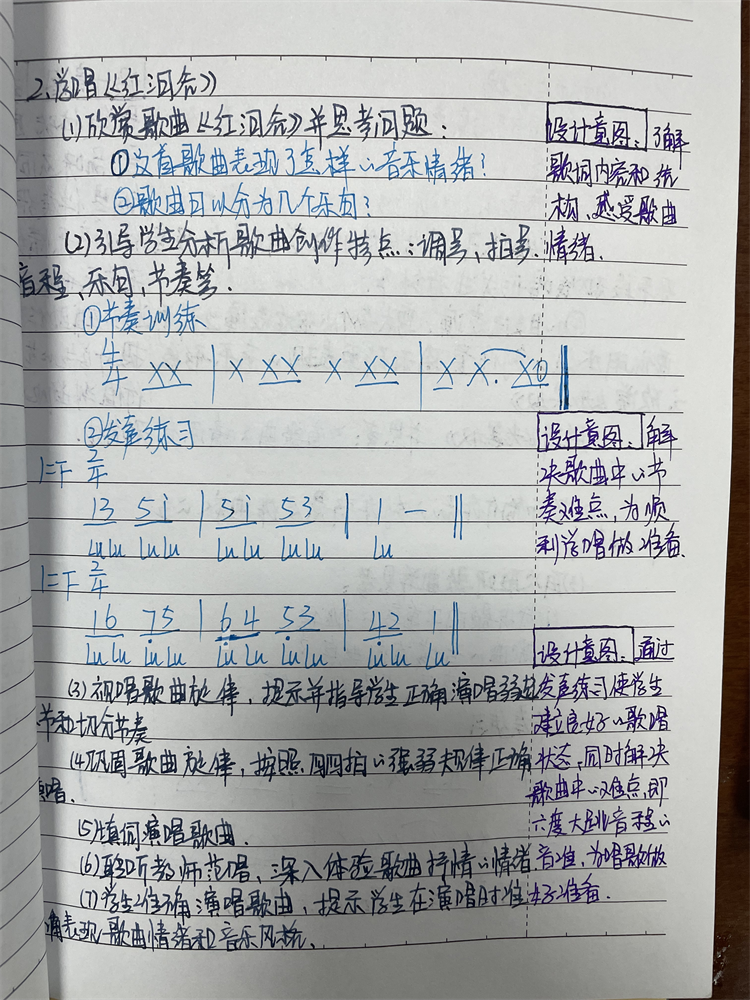 2.学唱《红河谷》
(1)欣赏歌曲《红河谷》并思考问题:
①这首歌曲表现了怎样的音乐情绪?
②歌曲可以分为几个乐句?
(2)引导学生分析歌曲创作特点:调号、拍号、
音程、乐句、节奏等.
①节奏训练
4/4 XX | X XX X XX | X X. X0 ‖
②发声练习
1=F 2/4
13 5i | 5i 53 | 1 — ‖
LuLu LuLu LuLu LuLu Lu
1=F 2/4
16 75 | 64 53 | 42 1 ‖
LuLu LuLu LuLu LuLu LuLu Lu
(3)视唱歌曲旋律,提示并指导学生正确演唱弱起
节和切分节奏
(4)巩固歌曲旋律,按照四四拍的强弱规律正确
演唱.
(5)填词演唱歌曲.
(6)聆听教师范唱,深入体验歌曲抒情的情绪.
(7)学生准确演唱歌曲,提示学生在演唱时准
确表现歌曲情绪和音乐风格.
设计意图:了解
歌词内容和结
构,感受歌曲
情绪.
设计意图:解
决歌曲中的节
奏难点,为顺
利学唱做准备.
设计意图:通过
发声练习使学生
建立良好的歌唱
状态,同时解决
歌曲中的难点,即
六度大跳音程的
音准,为唱歌做
好准备.